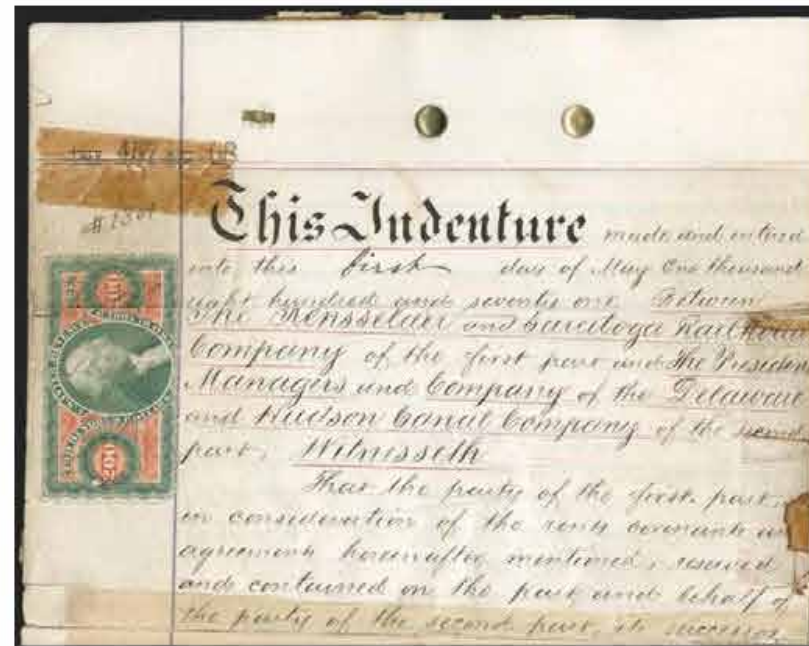 #1301
This Indenture made and entered
into this first day of May One thousand
eight hundred and seventy one Between
The Rensselaer and Saratoga Railroad
Company of the first part and The President
Managers and Company of the Delaware
and Hudson Canal Company of the second
part, Witnesseth
That the party of the first part,
in consideration of the rents covenants and
agreements hereinafter mentioned, reserved
and contained on the part and behalf of
the party of the second part, its successors
200